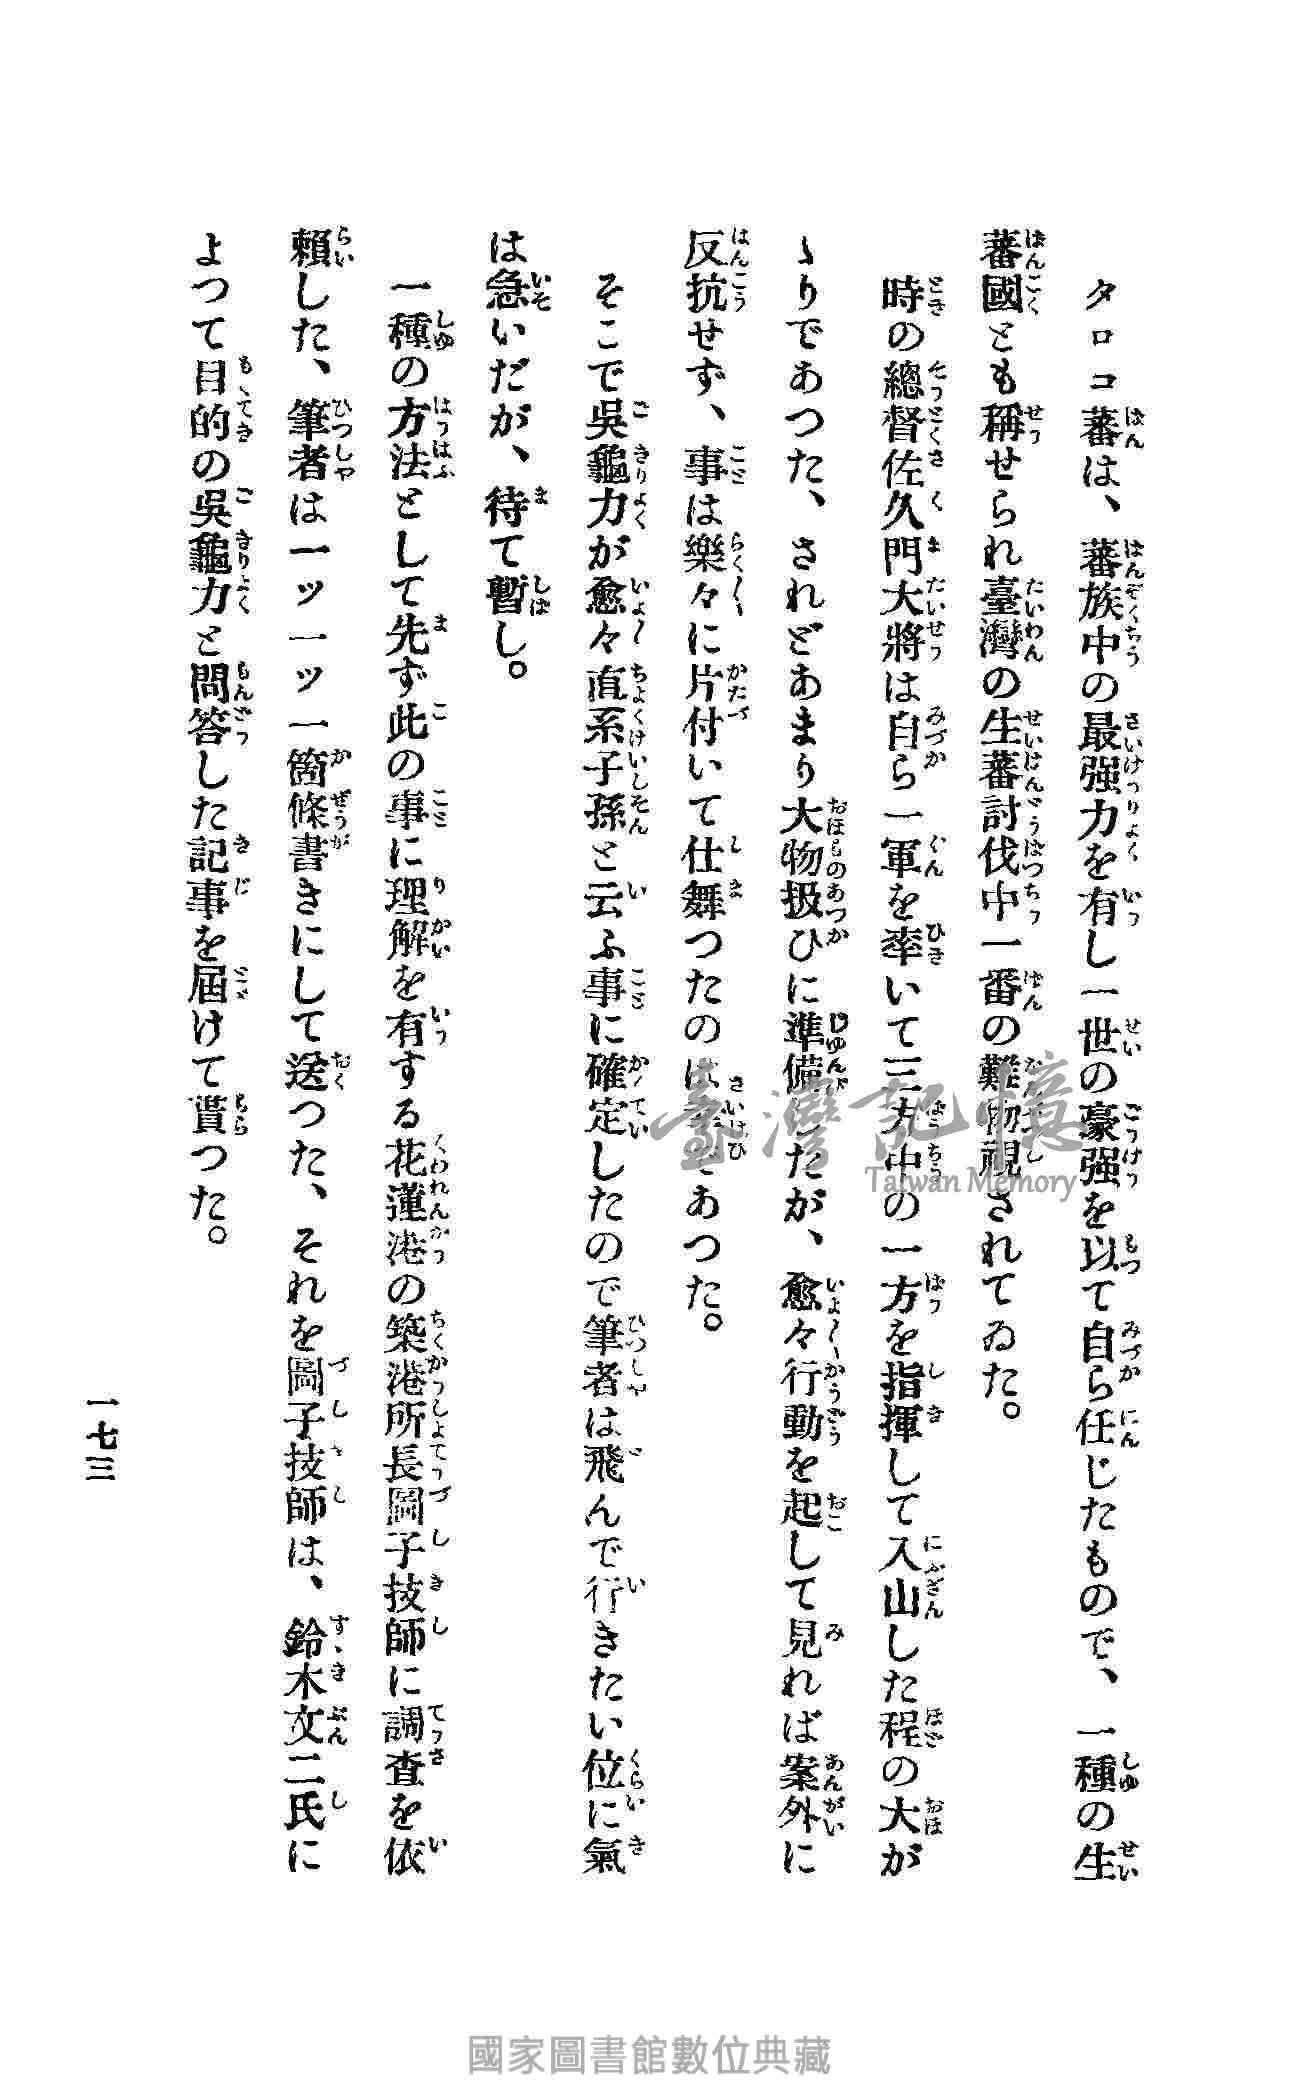 タロコ蕃は、蕃族中の最强力を有し一世の豪强を以て自ら任じたもので、一種の生
蕃國とも稱せられ臺灣の生蕃討伐中一番の難物視されてゐた。
時の總督佐久間大將は自ら一軍を率いて三方中の一方を指揮して入山した程の大が
ゝりであつた、されどあまり大物扱ひに準備したが、愈々行動を起して見れば案外に
反抗せず、事は樂々に片付いて仕舞つたのは幸であつた。
そこで吳龜力が愈々直系子孫と云ふ事に確定したので筆者は飛んで行きたい位に氣
は急いだが、待て暫し。
一種の方法として先ず此の事に理解を有する花蓮港の築港所長圖子技師に調査を依
賴した、筆者は一ッ一ッ一箇條書きにして送つた、それを圖子技師は、鈴木文二氏に
よつて目的の吳龜力と問答した記事を屆けて貰つた。
一七三
臺灣記憶
Taiwan Memory
國家圖書館數位典藏